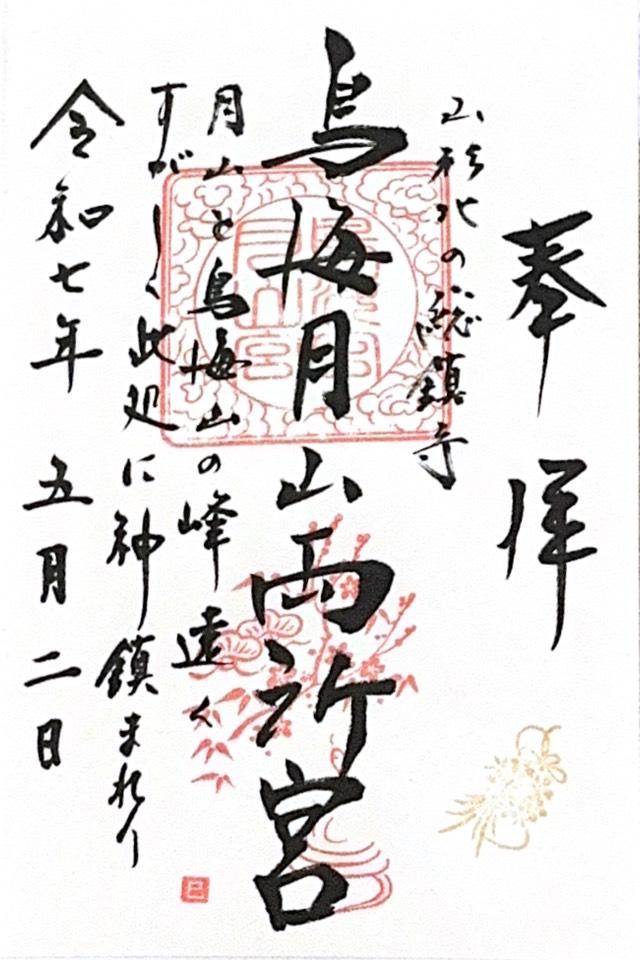 奉拝
山形北の総鎮守
鳥海月山両所宮
月山と鳥海山の峰遠く
すがしく此処に神鎮まれり
令和七年 五月 二日